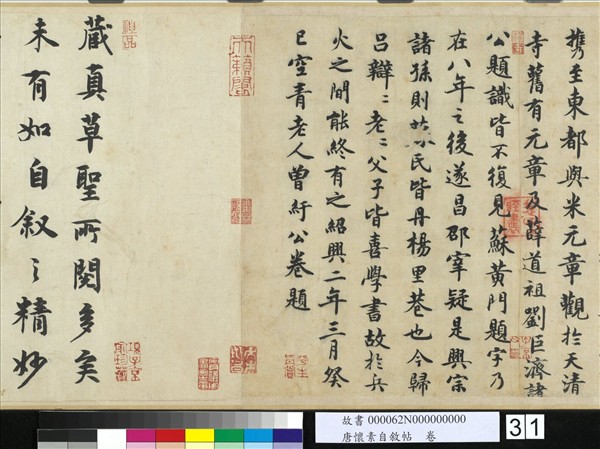 攜至東都與米元章觀於天清
寺舊有元章及薛道祖劉巨濟諸
公題識皆不復見蘇黃門題字乃
在八年之後遂昌邵宰疑是興宗
諸孫則 民皆丹楊里巷也今歸
呂辯〻老〻父子皆喜學書故於兵
火之間能終有之紹興二年三月癸
巳空青老人曾紆公卷題
藏真草聖所閱多矣
未有如自敘之精妙
故書 000062N000000000
唐懷素自敘帖 卷
31